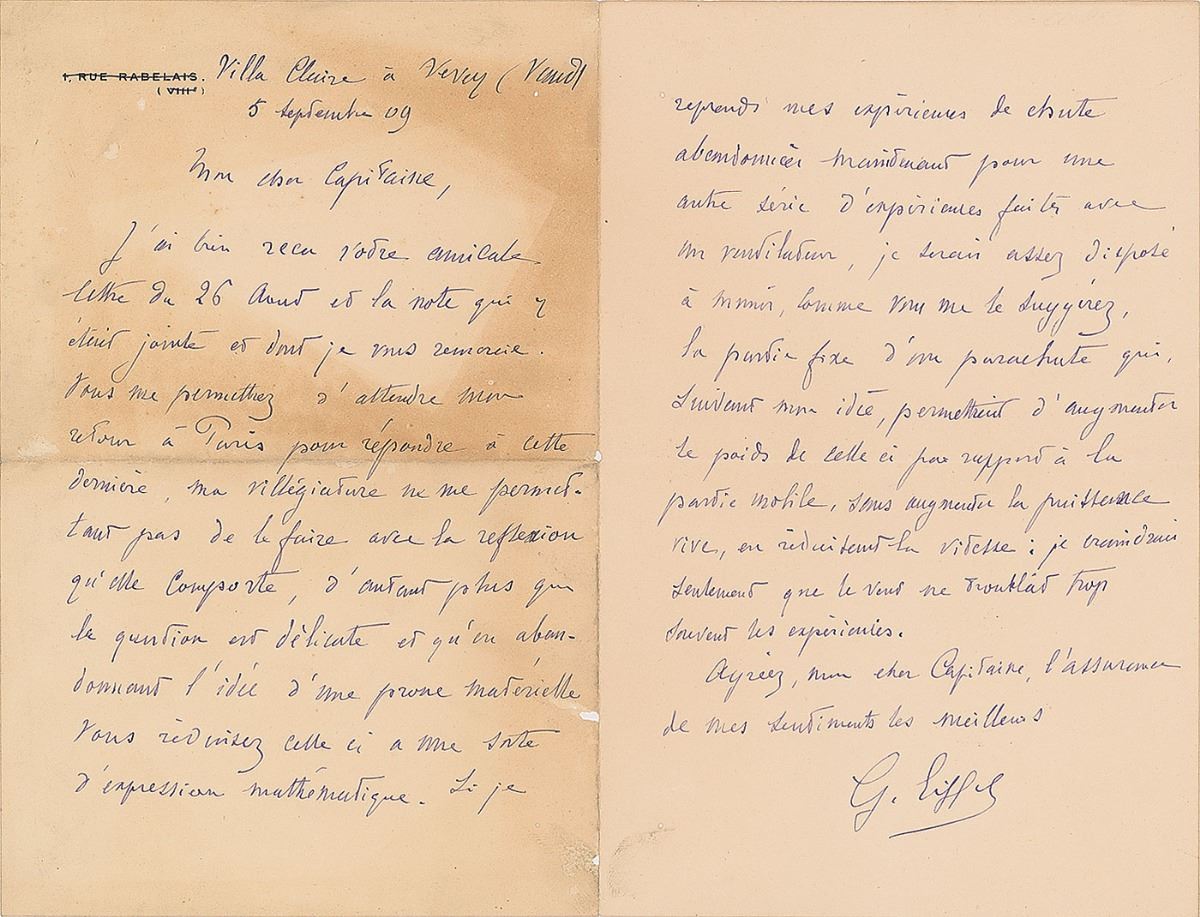 1, RUE RABELAIS. Villa Claire à Vevey (Vaud)
(VIIIe)
5 septembre 09
Mon cher Capitaine,
J'ai bien reçu votre amicale
lettre du 26 Aout et la note qui y
était jointe et dont je vous remercie.
Vous me permettrez d'attendre mon
retour à Paris pour répondre à cette
dernière, ma villégiature ne me permet-
tant pas de le faire avec la reflexion
qu'elle comporte, d'autant plus que
la question est délicate et qu'en aban-
donnant l'idée d'une proue matérielle
vous réduisez celle ci a une sorte
d'expression mathématique. Si je
reprends mes expériences de chute
abandonnées maintenant pour une
autre série d'expériences faites avec
un ventilateur, je serais assez disposé
à munir, comme vous me le suggérez,
la partie fixe d'un parachute qui,
suivant mon idée, permettrait d'augmenter
le poids de celle ci par rapport à la
partie mobile, sans augmenter la puissance
vive, en réduisant la vitesse ; je craindrais
seulement que le vent ne troublât trop
souvent les expériences.
Agréez, mon cher Capitaine, l'assurance
de mes sentiments les meilleurs
G. Eiffel